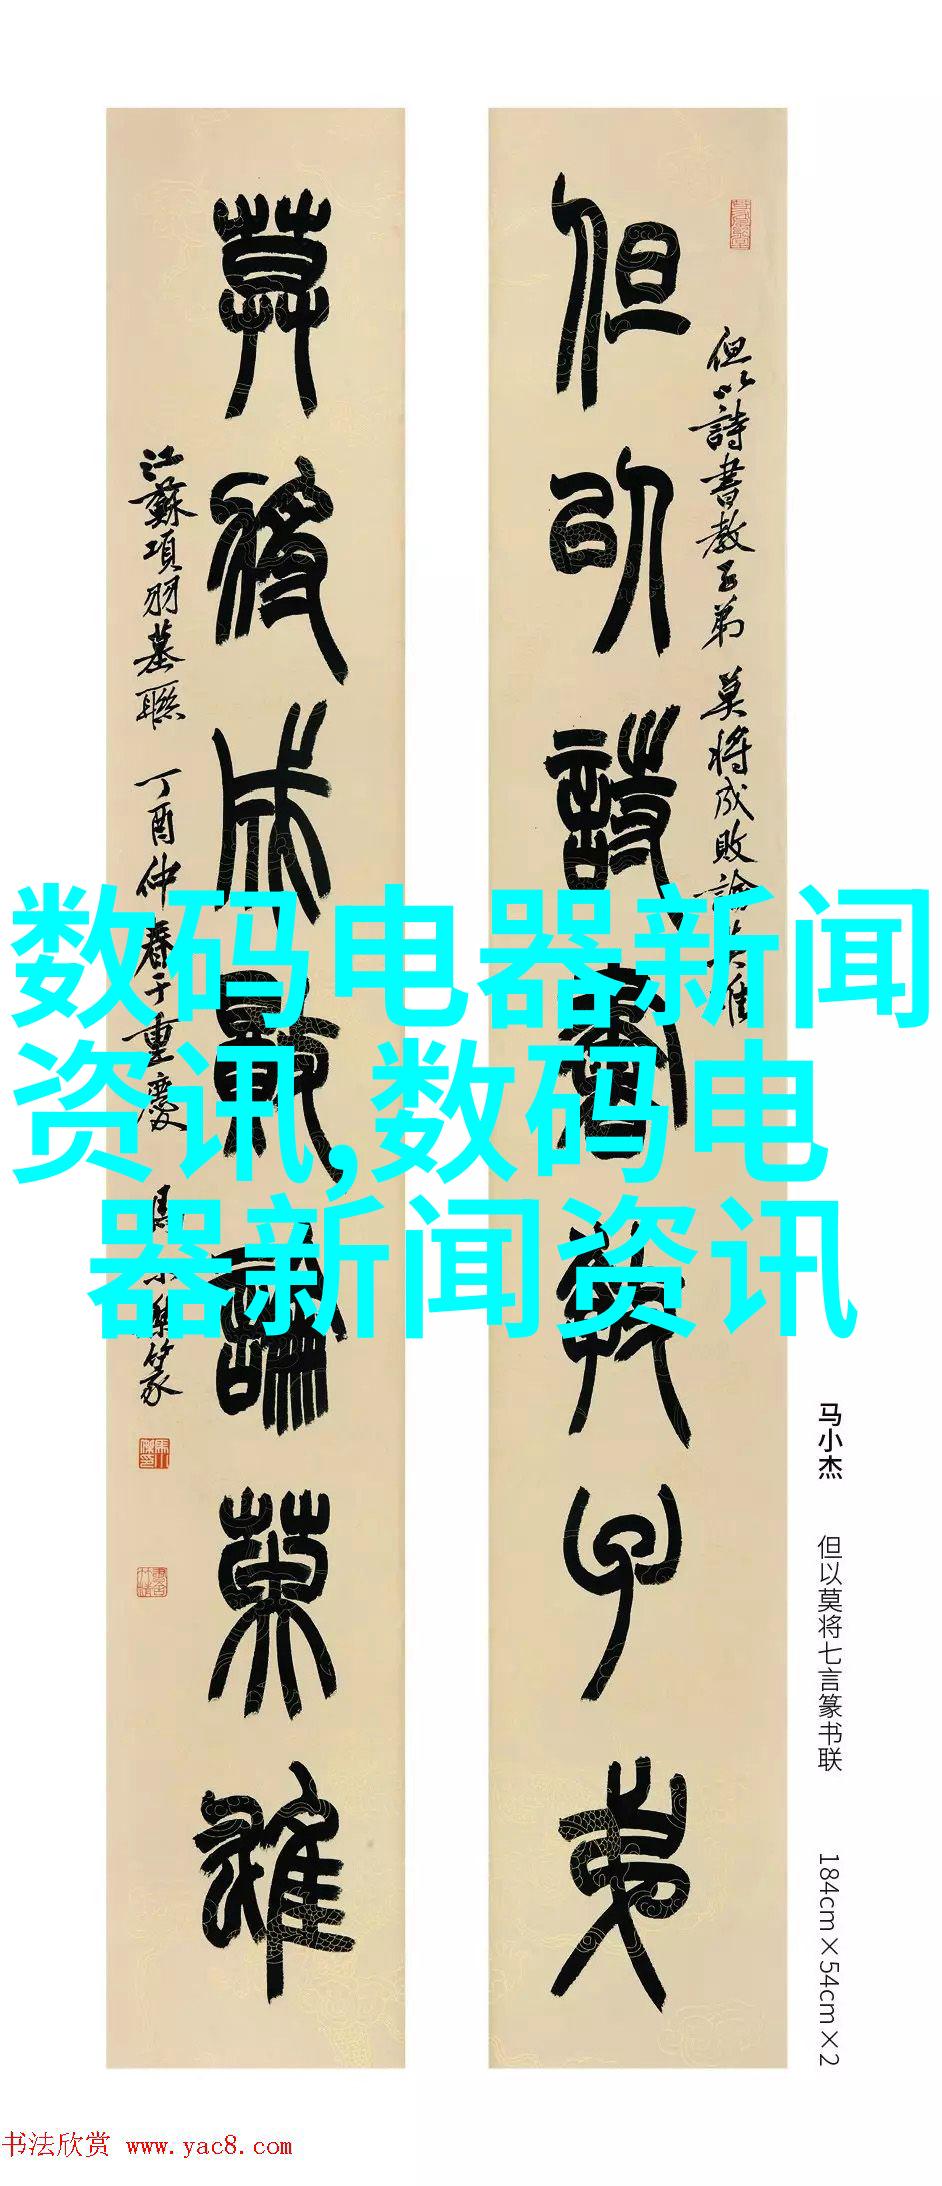 但以詩書教子弟
但以詩書教子弟 莫將成敗論英雄
莫將成敗論英雄
江蘇項羽墓聯 丁酉仲春于重慶 馬小傑篆
数码电器新闻
资讯,数码电
器新闻资讯
马小杰 但以莫将七言篆书联 184cm×54cm×2
书法欣赏 www.yac8.com